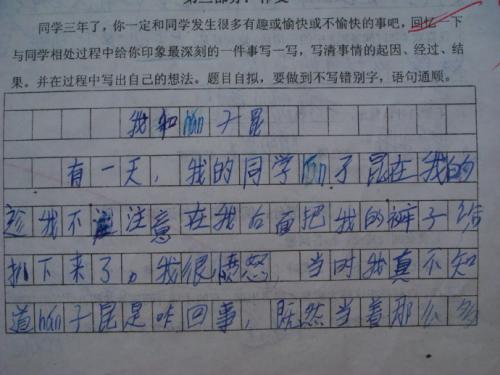 同学三年了，你一定和同学发生很多有趣或愉快或不愉快的事吧，回忆一下
与同学相处过程中给你印象最深刻的一件事写一写，写清事情的起因、经过、结
果。并在过程中写出自己的想法。题目自拟，要做到不写错别字，语句通顺。
我和子昆
有一天，我的同学子昆在我的
趁我不注意在我后面把我的裤子给
扒下来了。我很愤怒 当时我真不知
道hán子昆是咋回事，既然当着那么多